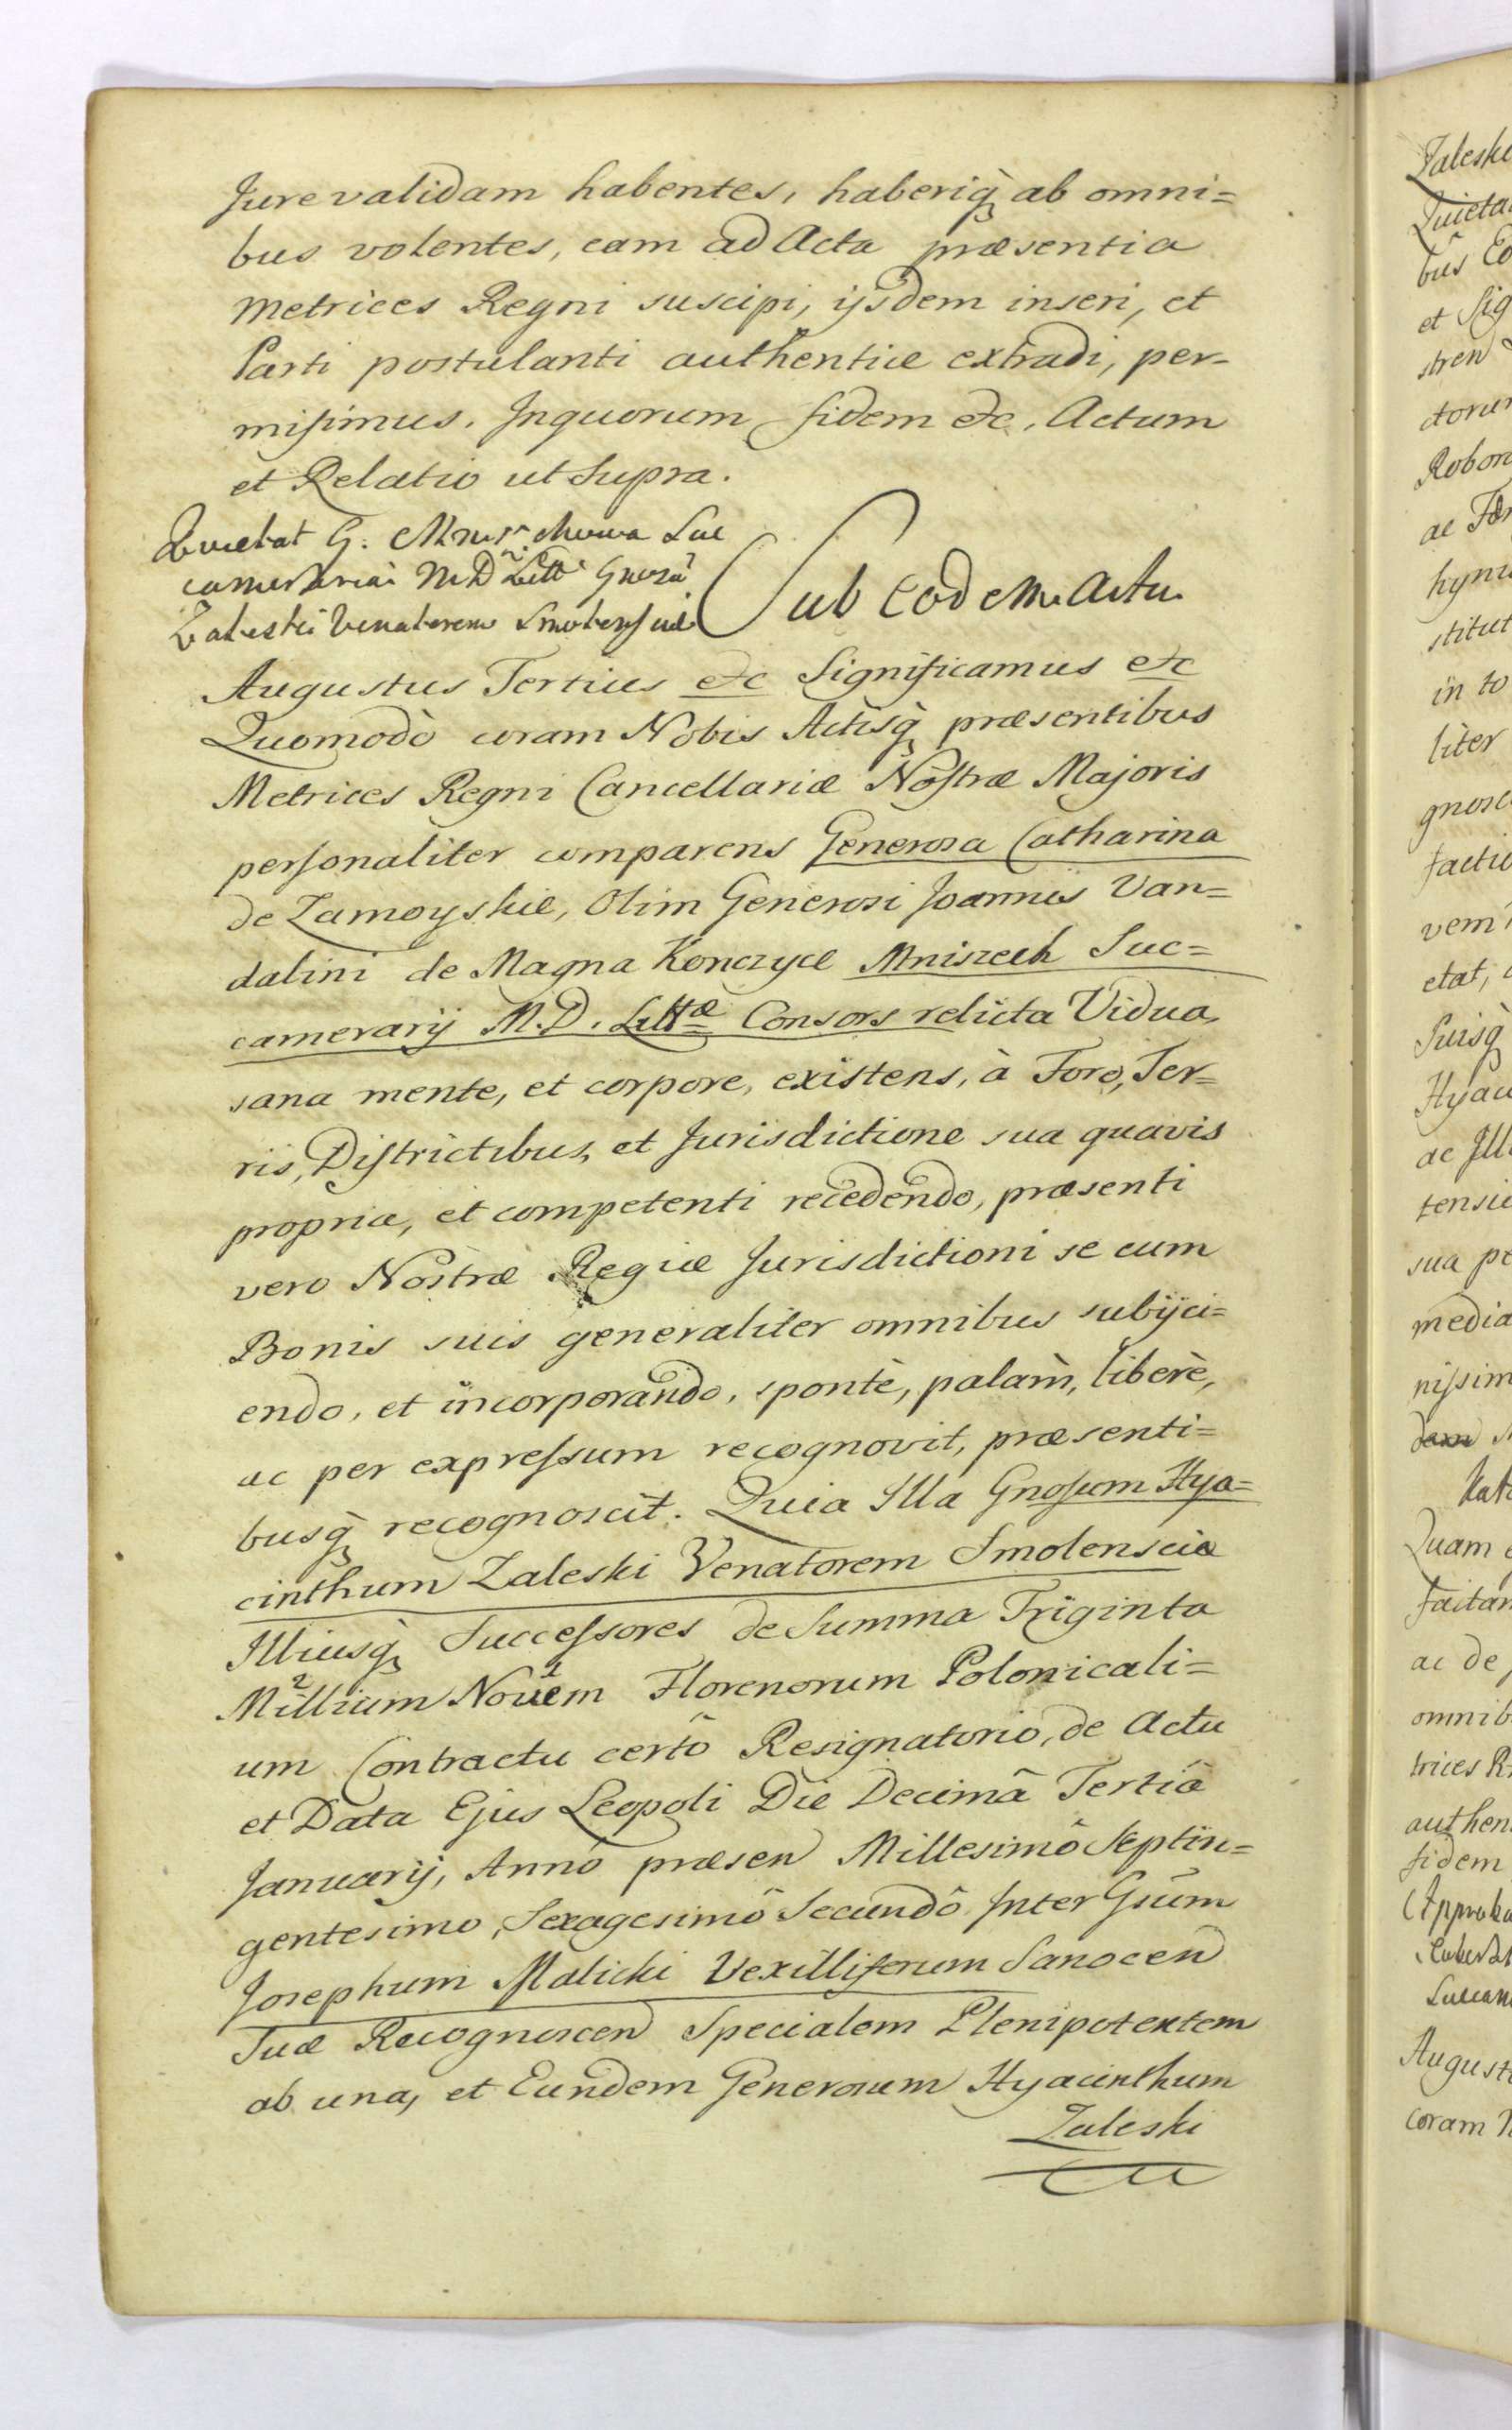 Jure validam habentes, haberiq̀ ab omni=
bus volentes, eam ad Acta præsentia
Metrices Regni suscipi, ijsdem inseri, et
Parti postulanti authentice extradi, per-
misimus. In quorum fidem etc. Actum
et Relatio ut Supra.
Quietat G. Mniszchowa Suc
cameraria M D Littæ Gnosū
Zaleski Venatorem Smolensciæ
Sub eodem Actu
Augustus Tertius etc Significamus etc
Quomodò coram Nobis Actisq̀ præsentibus
Metrices Regni Cancellariæ Nostræ Majoris
personaliter comparens Generosa Catharina
de Zamoyskie, Olim Generosi Joannis Van=
dalini de Magna Konczyce Mniszech Suc=
camerarij M. D. Littæ Consors relicta Vidua,
sana mente, et corpore, existens, à Foro, Ter=
ris, Districtibus, et Jurisdictione sua quavis
propria, et competenti recedendo, præsenti
vero Nostræ Regiæ Jurisdictioni se cum
Bonis suis generaliter omnibus subijci=
endo, et incorporando, spontè, palàm, liberè,
ac per expressum recognovit, præsenti=
busq̀ recognoscit. Quia Illa Gnosum Hya=
cinthum Zaleski Venatorem Smolensciæ
Illiusq̀ Successores de Summa Triginta
2 1
Millium Novem Florenorum Polonicali=
um Contractu certô Resignatorio, de Actu
et Data Ejus Leopoli Die Decimâ Tertiâ
Januarij, Annô præsen Millesimô Septin=
gentesimo, Sexagesimô Secundô Inter Gsum
Josephum Malicki Vexilliferum Sanocen
Suæ Recognoscen Specialem Plenipotentem
ab una, et Eundem Generosum Hyacinthum
Zaleski
Zaleski
Quieta
bus
et Sig
stren
dorum
Robor
ac
hyni
stitut
in to
liter
gnosc
factio
vem
etat,
Suisq̀
Hyaci
ac Ill
tensi
sua pe
media
nissim
Quam
ac de
omnib
trices R
authen
fidem
Approba
Succam
August
coram N